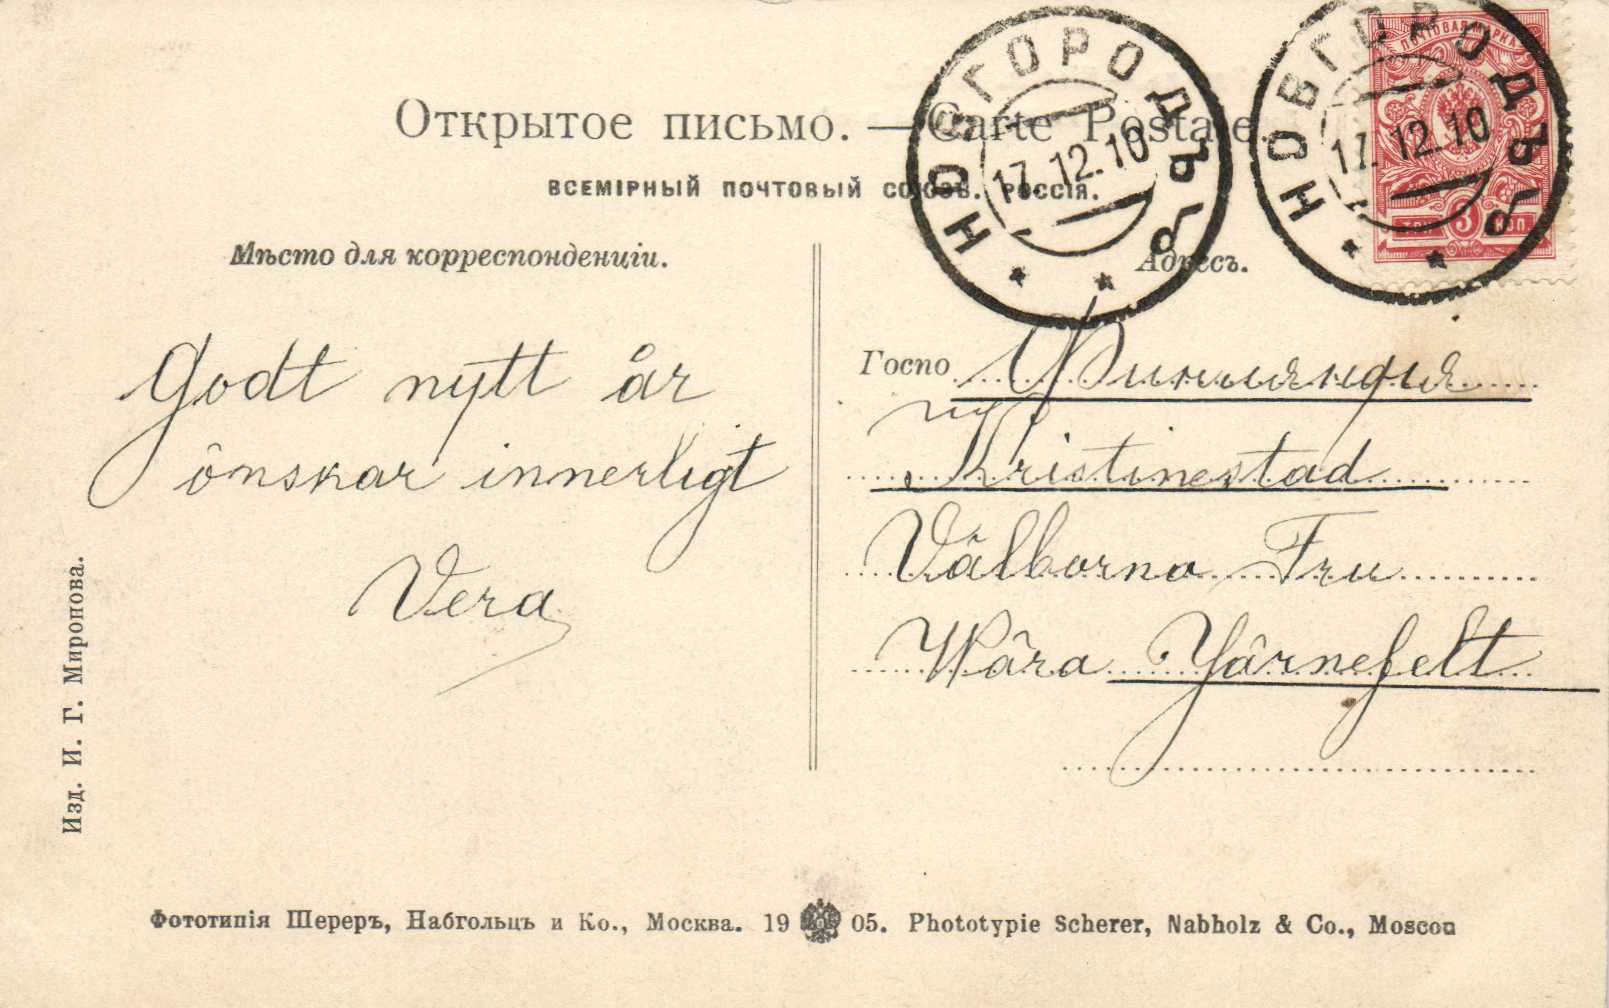 Открытое письмо. — Carte Postale
ВСЕМІРНЫЙ ПОЧТОВЫЙ СОЮЗЪ. РОССІЯ.
Мѣсто для корреспонденціи.
Адресъ.
НОВГОРОДЪ
17.12.10
НОВГОРОДЪ
17.12.10
ПОЧТОВАЯ МАРКА
3 КОП
Godt nytt år
önskar innerligt
Vera
Госпо
Финляндія
Kristinestad
Välborna Fru
Wära Yärnefelt
Изд. И. Г. Миронова.
Фототипія Шереръ, Набгольцъ и Ко., Москва. 19 05. Phototypie Scherer, Nabholz & Co., Moscou